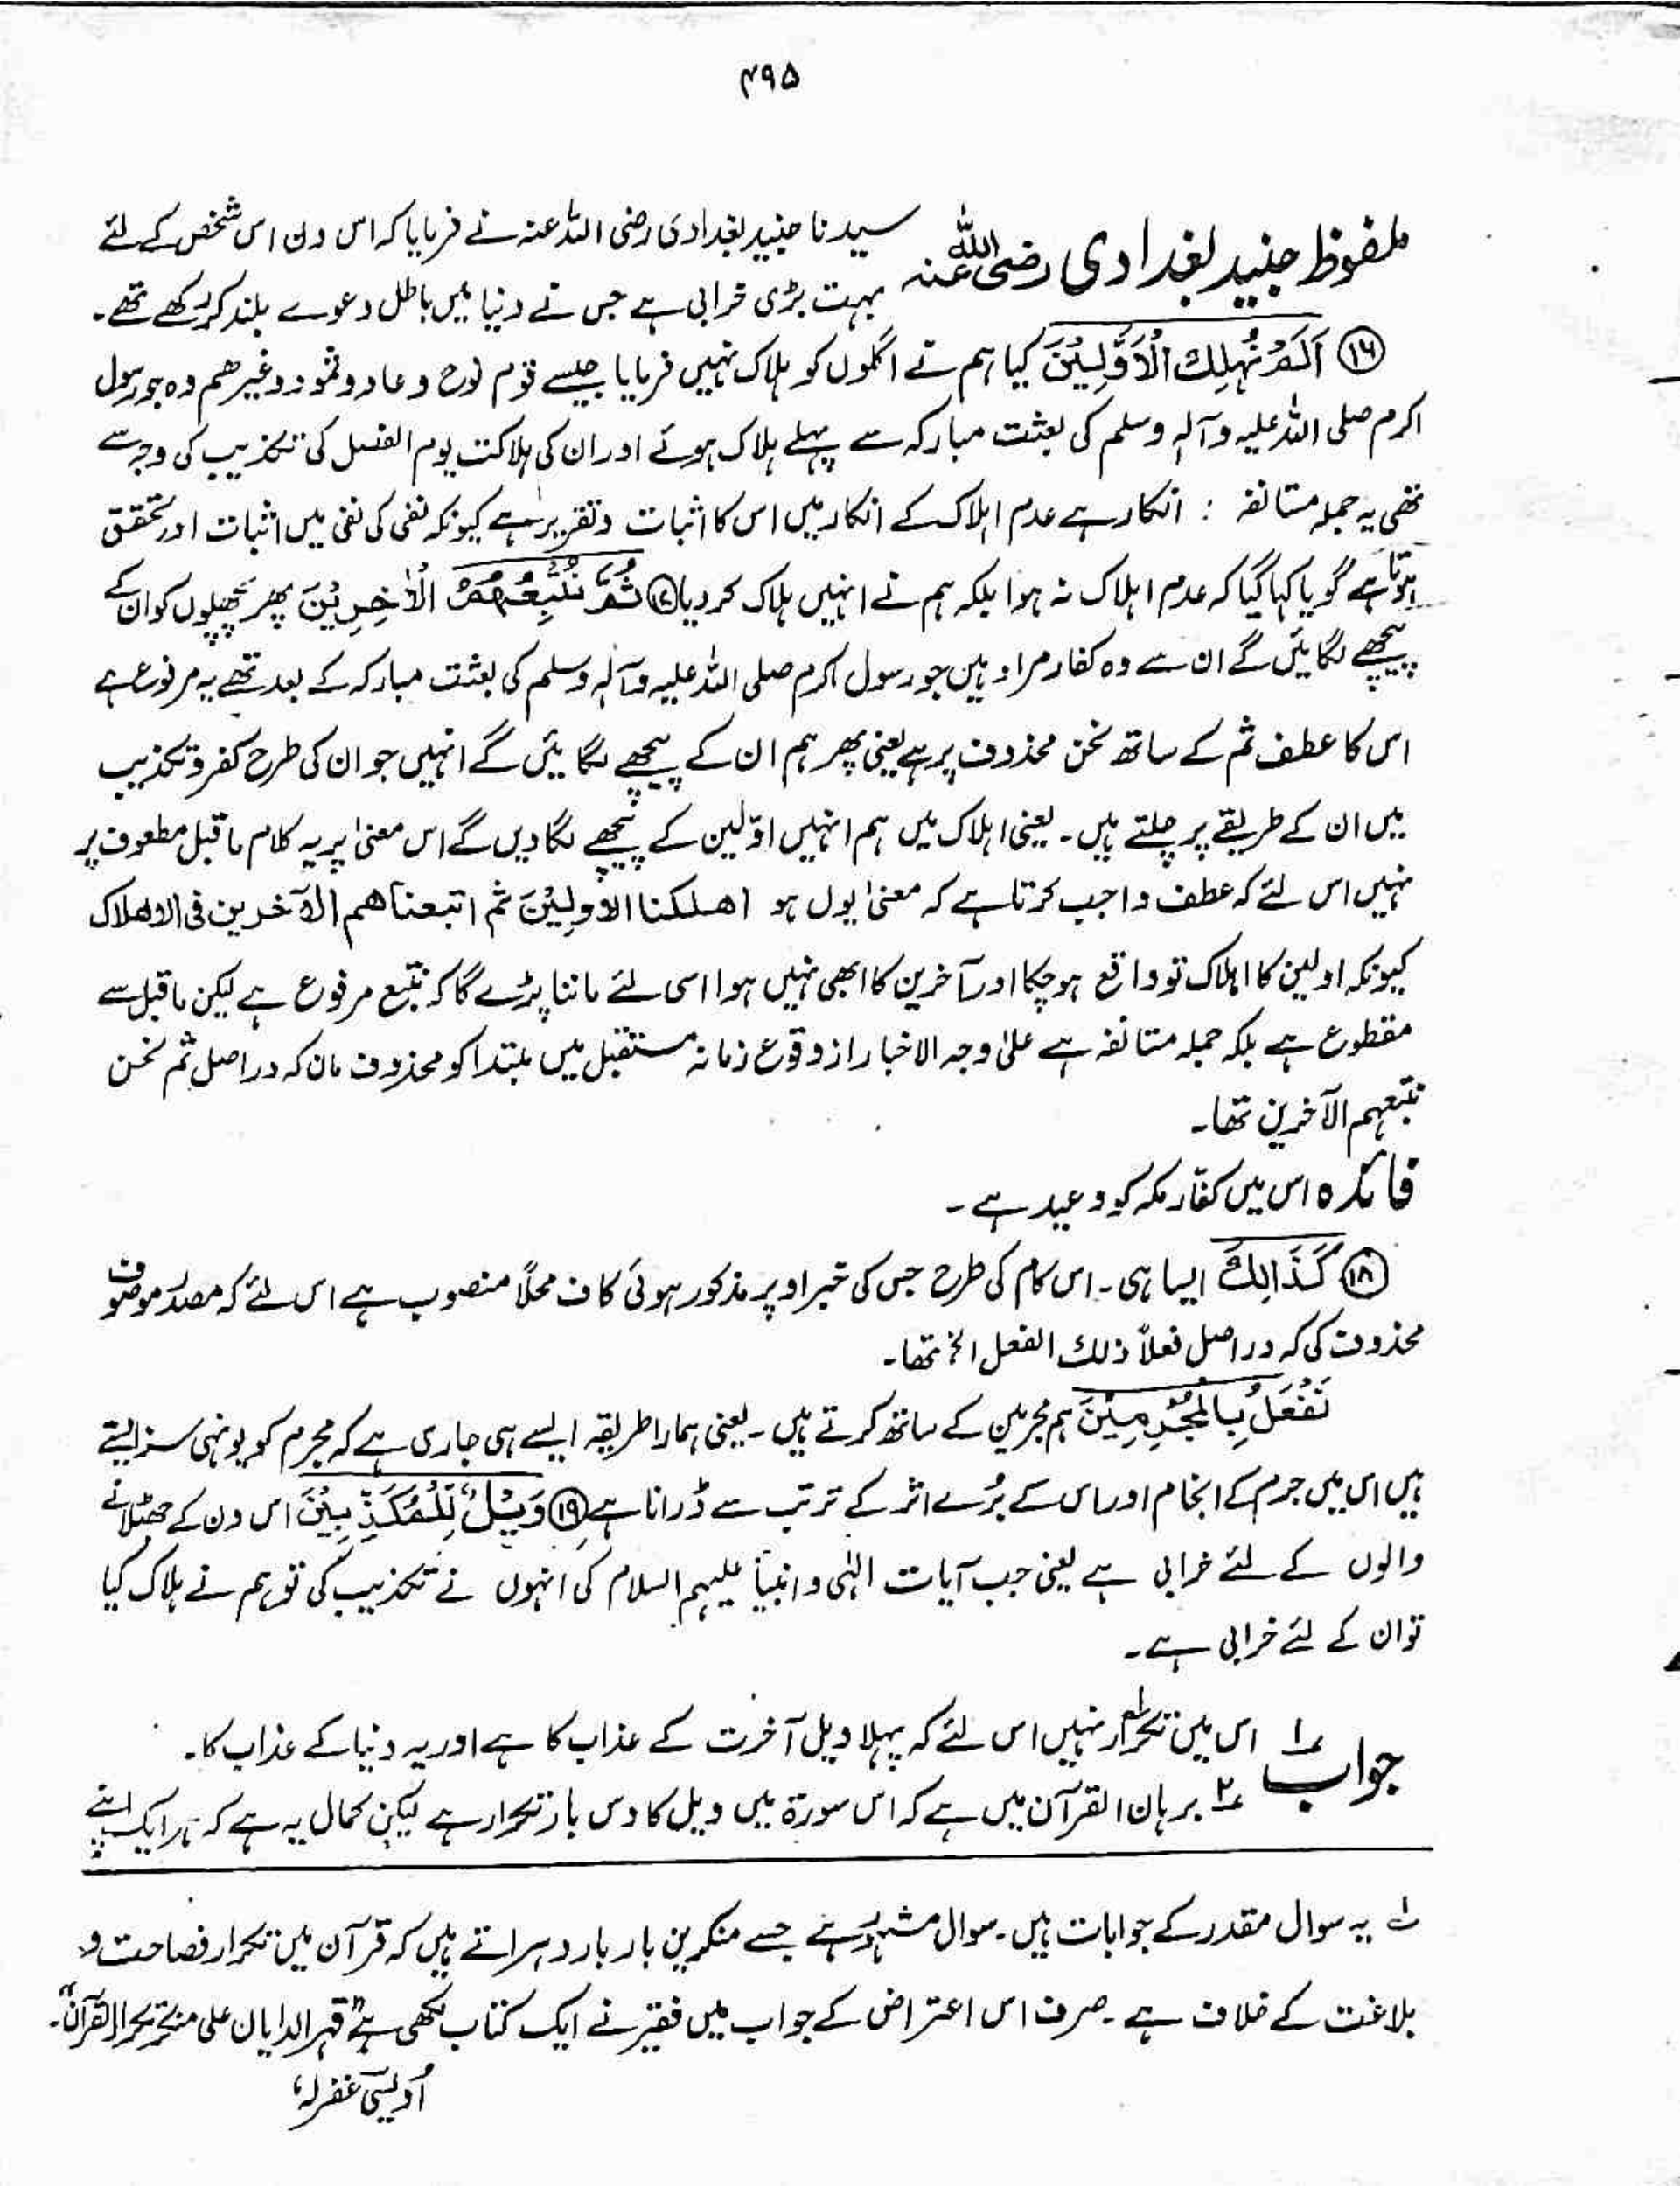 ۴۹۵
ملفوظ جنید بغدادی رضی اللہ عنہ سیدنا جنید بغدادی رضی اللہ عنہ نے فرمایا کہ اس دن اس شخص کے لئے
بہت بڑی خرابی ہے جس نے دنیا میں باطل دعوے بلند کر رکھے تھے۔
⑯ اَلَمْ نُهْلِكِ الْاَوَّلِيْنَ کیا ہم نے اگلوں کو ہلاک نہیں فرمایا جیسے قوم نوح و عاد و ثمود وغیرھم وہ جو رسول
اکرم صلی اللہ علیہ وآلہ وسلم کی بعثت مبارکہ سے پہلے ہلاک ہوئے اور ان کی ہلاکت یوم الفصل کی تکذیب کی وجہ سے
تھی یہ جملہ متانفہ : انکار ہے عدم اہلاک کے انکار میں اس کا اثبات و تقریر ہے کیونکہ نفی کی نفی میں اثبات اور تحقق
ہوتا ہے گویا کہا گیا کہ عدم اہلاک نہ ہوا بلکہ ہم نے انہیں ہلاک کر دیا ⑰ ثُمَّ نُتْبِعُهُمُ الْاٰخِرِيْنَ پھر پچھلوں کو ان کے
پیچھے لگائیں گے ان سے وہ کفار مراد ہیں جو رسول اکرم صلی اللہ علیہ وآلہ وسلم کی بعثت مبارکہ کے بعد تھے یہ مرفوع ہے
اس کا عطف ثم کے ساتھ نحن محذوف پر ہے یعنی پھر ہم ان کے پیچھے لگائیں گے انہیں جو ان کی طرح کفر و تکذیب
میں ان کے طریقے پر چلتے ہیں۔ یعنی اہلاک میں ہم انہیں اوّلین کے پیچھے لگا دیں گے اس معنیٰ پر یہ کلام ماقبل مطعوف پر
نہیں اس لئے کہ عطف واجب کرتا ہے کہ معنیٰ یوں ہو اھلکنا الاولین ثم اتبعناھم الآخرین فی الاھلاک
کیونکہ اولین کا اہلاک تو واقع ہو چکا اور آخرین کا ابھی نہیں ہوا اسی لئے ماننا پڑے گا کہ نتبع مرفوع ہے لیکن ماقبل سے
مقطوع ہے بلکہ جملہ متانفہ ہے علیٰ وجہ الاخبار از وقوع زمانہ مستقبل میں مبتدا کو محذوف مان کہ در اصل ثم نحن
نتبعہم الآخرین تھا۔
فائدہ اس میں کفّار مکہ کو وعید ہے۔
⑱ كَذَالِكَ ایسا ہی۔ اس کام کی طرح جس کی خبر اوپر مذکور ہوئی کاف محلاً منصوب ہے اس لئے کہ مصدر موصوف
محذوف کی کہ در اصل فعلاً ذلك الفعل الخ تھا۔
نَفْعَلُ بِالْمُجْرِمِيْنَ ہم مجرمین کے ساتھ کرتے ہیں۔ یعنی ہمارا طریقہ ایسے ہی جاری ہے کہ مجرم کو یونہی سزا دیتے
ہیں اس میں جرم کے انجام اور اس کے بُرے اثر کے ترتب سے ڈرانا ہے ⑲ وَيْلٌ لِّلْمُكَذِّبِيْنَ اس دن کے جھٹلانے
والوں کے لئے خرابی ہے یعنی جب آیات الٰہی و انبیاء علیہم السلام کی انہوں نے تکذیب کی تو ہم نے ہلاک کیا
تو ان کے لئے خرابی ہے۔
جواب ۱؎ اس میں تکرار نہیں اس لئے کہ پہلا ویل آخرت کے عذاب کا ہے اور یہ دنیا کے عذاب کا۔
۲؎ برہان القرآن میں ہے کہ اس سورۃ میں ویل کا دس بار تکرار ہے لیکن کمال یہ ہے کہ ہر ایک اپنے
۱؎ یہ سوال مقدر کے جوابات ہیں۔ سوال مشہور ہے جسے منکرین بار بار دہراتے ہیں کہ قرآن میں تکرار فصاحت و
بلاغت کے خلاف ہے۔ صرف اس اعتراض کے جواب میں فقیر نے ایک کتاب لکھی ہے "قہر الدیان علی منکر تکرار القرآن"۔
اُویسی غفرلہ،